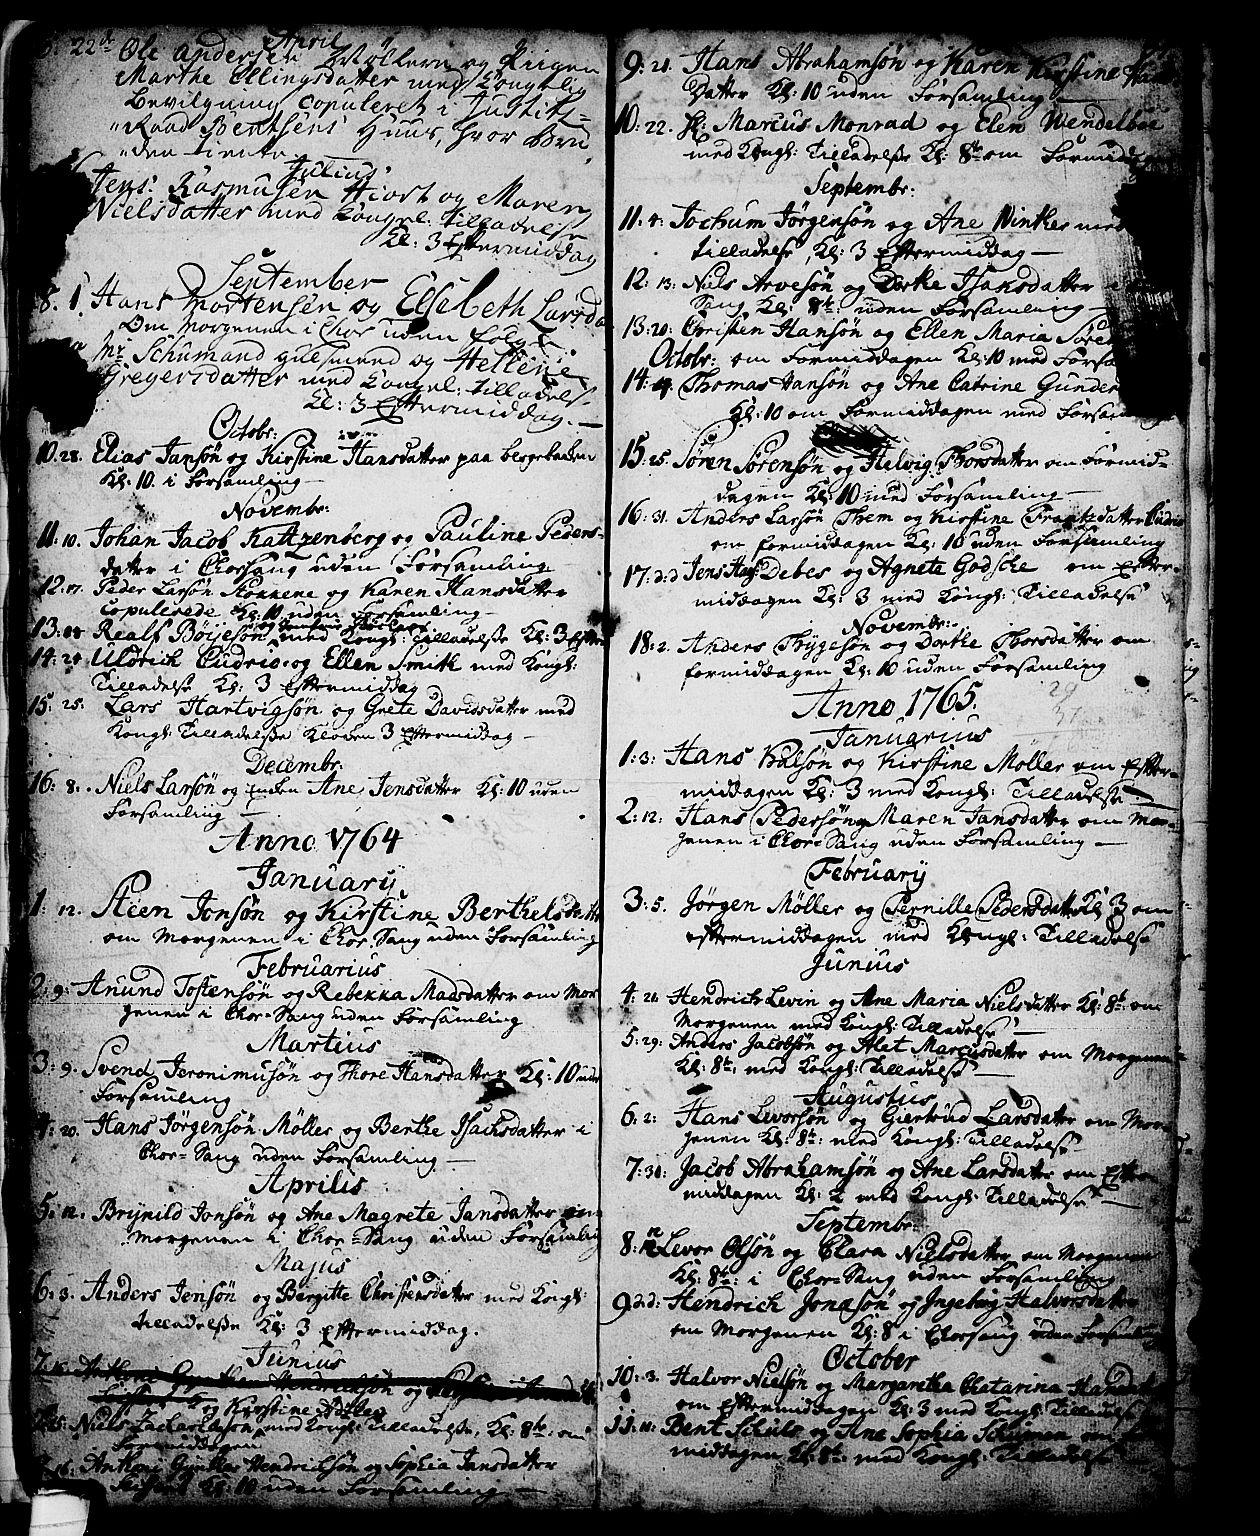 April
22d Ole Andersen Møllern og Piigen
Marthe Ellingsdatter med Kongelig
Bevilgning copuleret i Justits-
Raad Bentsens Huus, hvor Bru-
den tiente.
Julius
Jens Rasmusen Hiort og Maren
Nielsdatter med Kongel: Tilladelse
Kl: 3 Eftermiddag
September
8. 1. Hans Mortensen og Elsebeth Larsda
Om morgenen i Chor uden folge
Mr Schumand og Hellene
Gregersdatter med Kongel: Tilladelse
Kl: 3 Eftermiddag. —
Octobr:
10. 28. Elias Jansøn og Kirstine Hansdatter paa
Kl: 10. i Forsamling —
Novembr:
11: 10. Johan Jacob Kattzenberg og Pauline Peders-
datter i Chorsang uden Forsamling —
12: 17. Peder Larsøn Stokkene og Karen Hansdatter
copulerede Kl: 10 uden Forsamling —
13: Realf Böyeson med Kongl: Tilladelse Kl: 3 Efterm
14: 24 Uldrich Cudrio og Ellen Smith med Kongl:
Tilladelse Kl: 3 Eftermiddag
15: 25. Lars Hartvigsøn og Grete Davidsdatter med
Kongl: Tilladelse Kloken 3 Eftermiddag —
Decembr:
16: 8. Niels Larsøn og Enken Ane Jensdatter Kl: 10 uden
Forsamling —
Anno 1764
January
1: 12. Steen Jonsøn og Kirstine Berthelsdatter
om Morgenen i Chor-Sang uden Forsamling
Februarius
2: 9: Anund Tostensøn og Rebekka Madsdatter om Mor-
genen i Chor-Sang uden Forsamling
Martius
3: 9. Svend Jeronimusøn og Thore Hansdatter Kl: 10 uden
Forsamling
4: 20. Hans Jørgensøn Möller og Berthe Isachsdatter i
Chor-Sang uden Forsamling —
Aprilis
5: 12. Brynild Jonsøn og Ane Magrete Jansdatter om
Morgenen i Chor-Sang uden Forsamling
Majus
6: 3. Anders Jensøn og Bergitte Christensdatter med Kongl:
Tilladelse Kl: 3 Eftermiddag.
Junius
7. Anthoni Hendrichsøn og
og Kirstine
15: Niels Zachariasøn med Kongl: Tilladelse, Kl: 8te om
Formiddagen
16: Anthoni Gunther Hendrichsøn og Sophia Jansdatter
Kl: 10 uden Forsamling —
9: 21. Hans Abrahamsøn og Karen Kirstine
Datter Kl: 10 uden Forsamling —
10. 22. Hr: Marcus Monrad og Elen Wendelboe
med Kongl: Tilladelse Kl: 8te om Formiddagen
Septembr:
11. 4: Jochum Jørgensøn og Ane Winther med
Tilladelse, Kl: 3 Eftermiddag —
12: 13: Niels Arvesøn og Dorthe Isaksdatter i
Sang Kl: 8te uden Forsamling —
13: 20: Christen Hansøn og Ellen Maria Søren
Octobr: om Formiddagen Kl: 10 med Forsa
14: 4: Thomas Jansøn og Ane Catrine Gunder
Kl: 10 om Formiddagen med Forsam
15. 25. Søren Sørensøn og Helvig Thorsdatter om Formid-
dagen Kl: 10 med Forsamling —
16: 31. Anders Larsøn Threm og Kirstine Frantzdatter Cudrio
om formiddagen Kl: 10 uden Forsamling
17: Jens Debes og Agnete Godsche om Efter-
middagen Kl: 3 med Kongl: Tilladelse
Novembr:
18: 2. Anders Thygeson og Dorthe Thorsdatter om
formiddagen Kl: 10 uden Forsamling
Anno 1765.
Januarius
1: 3: Hans Halsøn og Kirstine Møller om Efter-
middagen Kl: 3 med Kongl: Tilladelse —
2: 12: Hans Pedersøn og Maren Jansdatter om Mor-
genen i Chor-Sang uden Forsamling —
February
3: 5. Jørgen Möller og Pernille Pedersdatter Kl: 3 om
eftermiddagen med Kongl: Tilladelse
Junius
4: 21: Hendrich Levin og Ane Maria Nielsdatter Kl: 8te om
Morgenen med Kongl: Tilladelse
5: 29: Anders Jacobsøn og Alet Marcusdatter om Morgenen
Kl: 8te: med Kongl: Tilladelse —
Augustus
6: 2: Hans Levorsøn og Giertrud Larsdatter om Mor-
genen Kl: 8te: med Kongl: Tilladelse
7: 30: Jacob Abrahamsøn og Ane Larsdatter om Efter-
middagen Kl: 2 med Kongl: Tilladelse
Septembr:
8: 12 Levor Olsøn og Clara Nielsdatter om Morgenen
Kl: 8te: i Chor-Sang uden Forsamling
9: Hendrich Jonasøn og Ingeborg Halvorsdatter
om Morgenen Kl: 8 i Chorsang uden Forsamling
October
10: 3. Halvor Nielsøn og Margaretha Chatarina Hansdatter
om Eftermiddagen Kl: 3 med Kongl: Tilladelse
11: 11: Bent Schulz og Ane Sophia Schumen om
middagen Kl: 8te: med Kongl: Tilladelse —